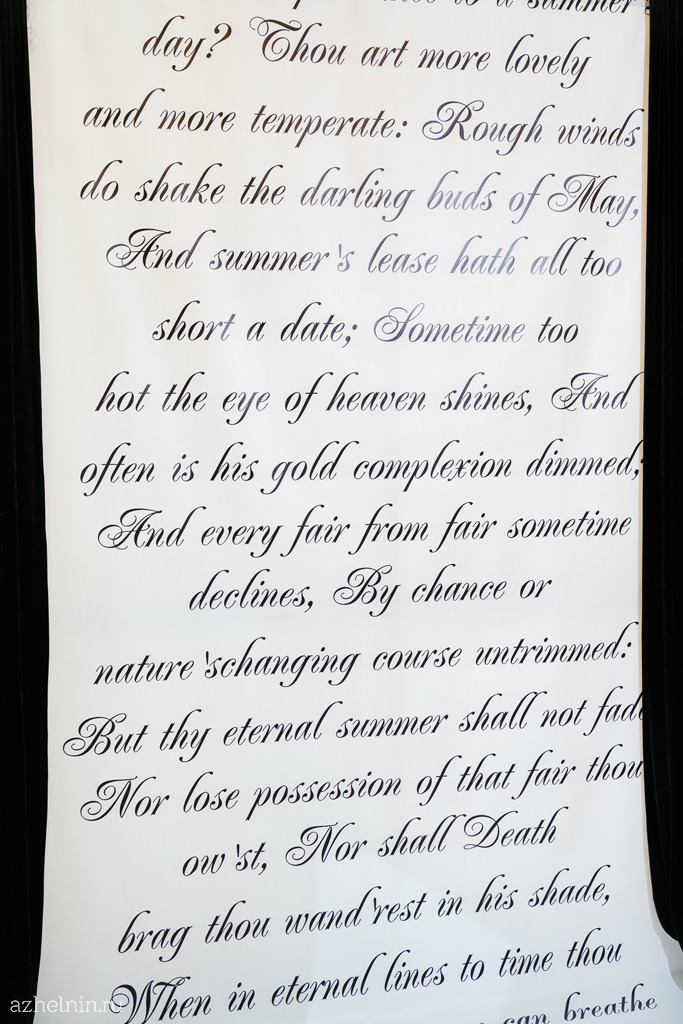 to a summer's
day? Thou art more lovely
and more temperate: Rough winds
do shake the darling buds of May,
And summer's lease hath all too
short a date; Sometime too
hot the eye of heaven shines, And
often is his gold complexion dimmed;
And every fair from fair sometime
declines, By chance or
nature'schanging course untrimmed:
But thy eternal summer shall not fade
Nor lose possession of that fair thou
ow'st, Nor shall Death
brag thou wand'rest in his shade,
When in eternal lines to time thou
can breathe
azhelnin.ru